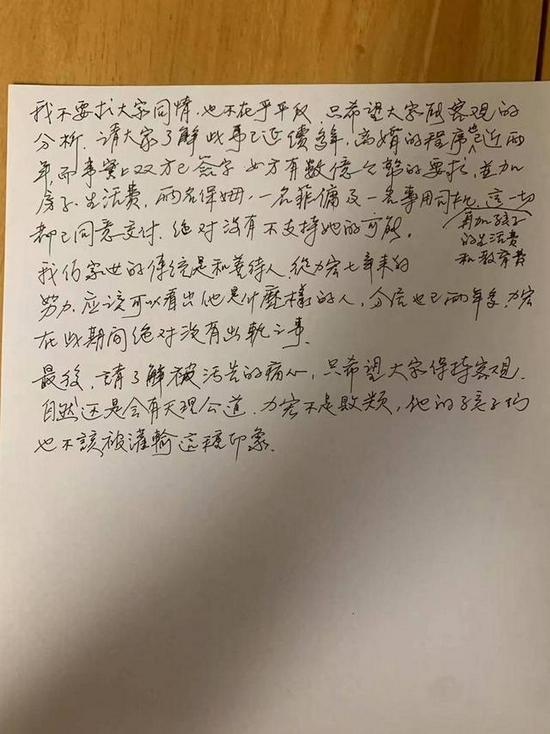 我不要求大家同情,也不在乎平反,只希望大家能客观的
分析,請大家了解此事已延續多年,离婚的程序已近两
年,而事實上双方已簽字 女方有数億台幣的要求,並加
房子,生活費,两名保姆,一名菲傭及一名專用司机,這一切
都已同意交付,绝对沒有不支持她的可能。
再加孩子
的生活费
和教育费
我们家世的傳統是和善待人 從力宏七年来的
努力,应该可以看出他是什麼樣的人,分居也已两年多,力宏
在此期间绝对沒有出軌之事.
最後,請了解被污告的痛心,只希望大家保持客观,
自然还是会有天理公道.力宏不是败類,他的孩子们
也不該被灌輸這種印象.